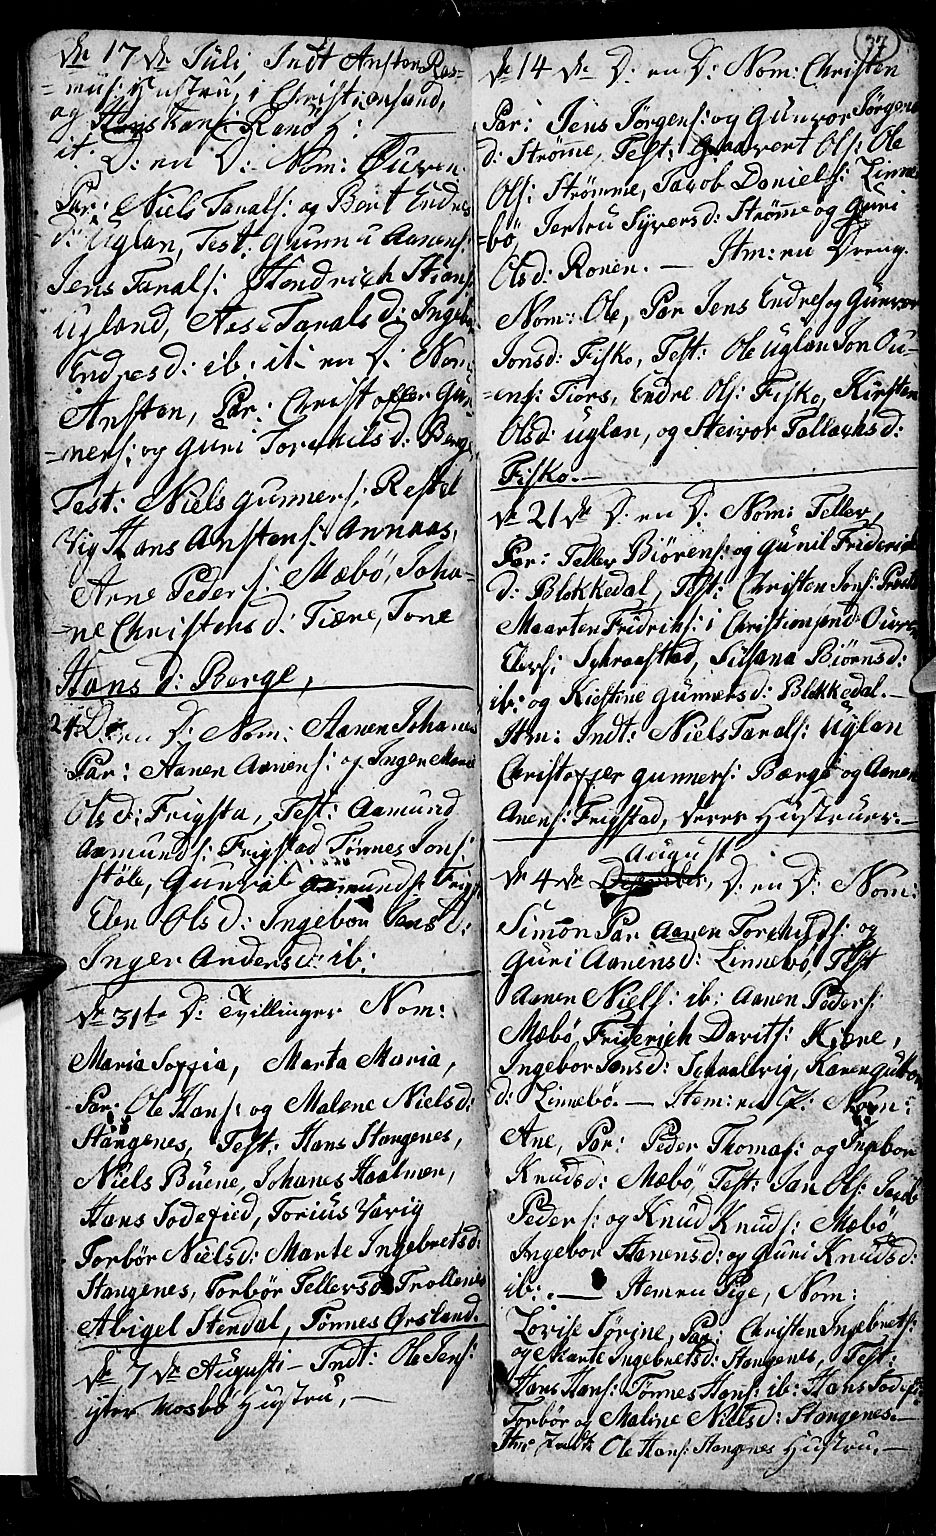 de 17 de Juli Indt Ansten Ras=
=mus: Hustru, i Christiansand,
og Hans Hans: Ranö H:
it: D: en D: Nom: Ouven.
Par: Niels Taralf: og Bert Endres
d: Uglan, Test: Gunnu Aanens:
Jens Taralf: Hendrich Stians:
Ugland, Aase Taralsd: Ingebor
Endresd: ib: it: en D: Nom:
Ansten, Par: Christoffer Gun=
=ners: og Guri Torchilsd: Berge
Test: Niels Gunners:
Vig Hans Anstens: Annaas,
Arne Peders: Mæbö, Joha=
=ne Christensd: Tiære, Tone
Hans d: Berge,
24 De en D: Nom: Aanen Johanes
Par: Aanen Aanens: og Inger Maria
Olsd: Frigsta, Test: Aamund
Aamunds: Frigstad Tönnes Jons:
Stöle, Gunval Aamunds: Frigst:
Elen Olsd: Ingebor Jans D:
Inger Andersd: ib:
de 31te D: Tvillinger Nom:
Maria Soffia, Marta Maria,
Par: Ole Hans: og Malene Nielsd:
Stangenes, Test: Hans Stangenes,
Niels Buene, Johanes Haalmen,
Hans Sodefied, Torius Varig
Torbör Nielsd: Marte Ingebretsd:
Stangenes, Torbör Tellersd: Trollenes
Abigel Stendal, Tönnes Örsland.
de 7 de Augusti – Indt: Ole Jens:
ytre Mosbö Hustru, —
37
de 14 de D: en D: Nom: Christen
Par: Jens Jörgens: og Gunvor Jörgens
d: Strömme, Test: Ols: Ole
Ols: Strömme, Jacob Daniels: Linne
=bö, Jertru Syversd: Strömme og Guri
Olsd: Ronen. — Itm: en Dreng.
Nom: Ole, Par Jens Endres og Gunvor
Jonsd: Fisko, Test: Ole Uglan Jon Ou=
=ens: Tiörs, Endre Ols: Fisko, Kirsten
Olsd: Uglan, og Steivor Tallachsd:
Fisko.—
de 21 de D: en D: Nom: Teller,
Par: Teller Biörens: og Gunil Friderich
d: Blekkedal, Test: Christen Jons:
Maarten Fridrichs: i Christiansand Ouven
Elevs: Schraastad, Susana Biörnsd:
ib: og Kirstine Gunnersd: Blekkedal.—
Itm: Indt: Niels Tarals: Uglan
Christoffer Gunners: Berge og Aanen
Anens: Frigstad, deres Hustruer.—
August
de 4 de D: en D: Nom:
Simon Par Aanen Torchilds: og
Guri Aanensd: Linnebö, Test
Aanen Niels: ib: Aanen Peders:
Mæbö, Friderich Davits: Kiære,
Ingebor Jensd: Schaalevig, Karen Gulbr
d: Linnebö. — Item: en P: Nom:
Ane, Par: Peder Thomas: og Ingebor
Knudsd: Mæbö, Test: Jan Ols: Jacob
Peders: og Knud Knuds: Mæbö
Ingebor Aanensd: og Guri Knudsd:
ib: — Item en Pige, Nom:
Lovise Sörine, Par: Christen Ingebrets:
og Marte Ingebretsd: Stangenes, Test:
Hans Hans: Tönnes Hans: ib: Hans Sodef:
Torbör og Maline Nielsd: Stangenes.—
Itm: Indt: Ole Hans: Stangenes Hustru.—